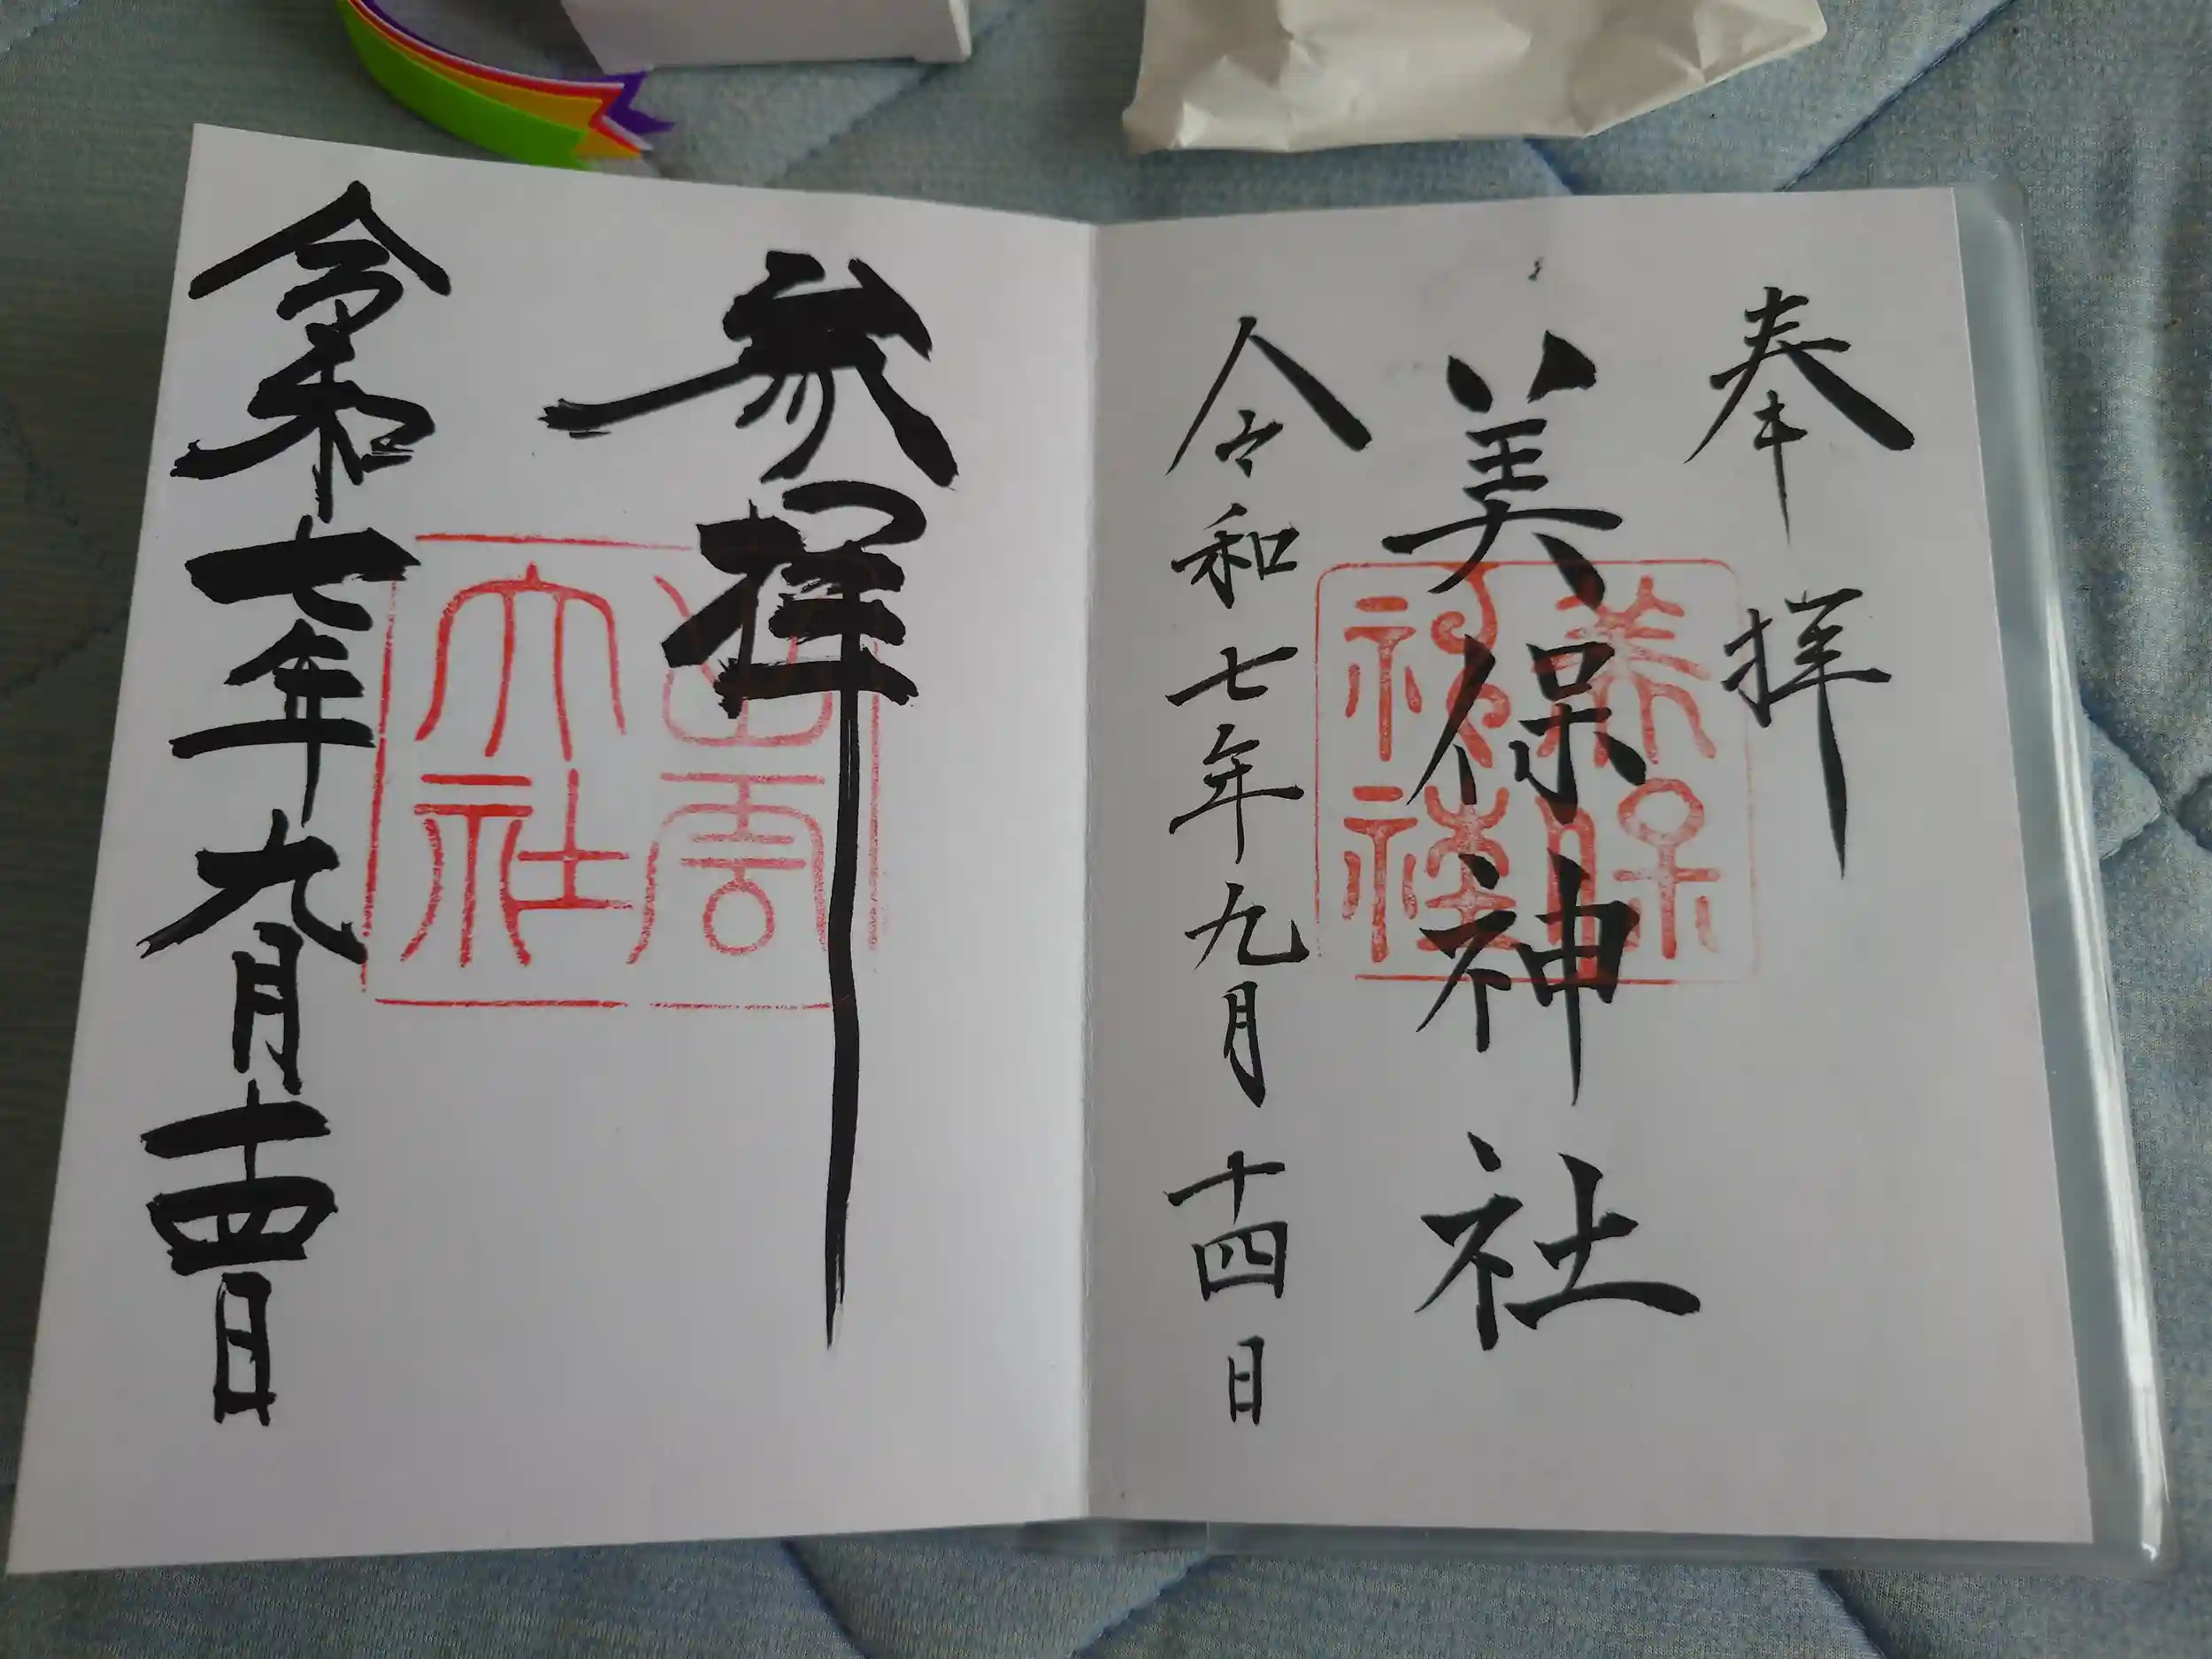 奉拝
美保神社
美保
神社
令和七年九月十四日
参拝
出雲
大社
令和七年九月十四日